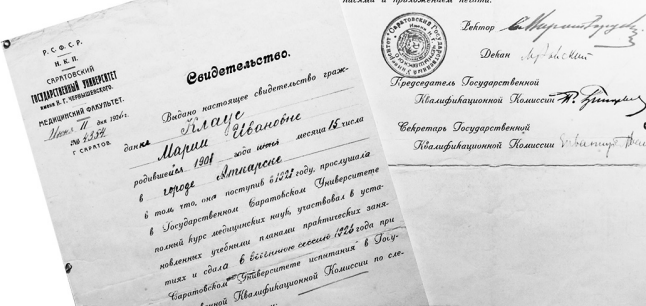 Р. С. Ф. С. Р.
Н. К. П.
САРАТОВСКИЙ
ГОСУДАРСТВЕННЫЙ УНИВЕРСИТЕТ
имени Н. Г. ЧЕРНЫШЕВСКОГО.
МЕДИЦИНСКИЙ ФАКУЛЬТЕТ.
Июня 11 дня 1926 г.
№ 4354
Г. САРАТОВ.
Свидетельство.
Выдано настоящее свидетельство граж-
данке Клаус
Марии Ивановне
родившейся 1901 года июня месяца 15 числа
в городе Аткарске
в том, что она поступив в 1921 году, прослушала
в Государственном Саратовском Университете
полный курс медицинских наук, участвовал в уста-
новленных учебными планами практических заня-
тиях и сдала в весеннюю сессию 1926 года при
Саратовском Университете испытания в Госу-
венной Квалификационной Комиссии по сле-
и приложением печати.
Ректор
Декан
Председатель Государственной
Квалификационной Комиссии
Секретарь Государственной
Квалификационной Комиссии